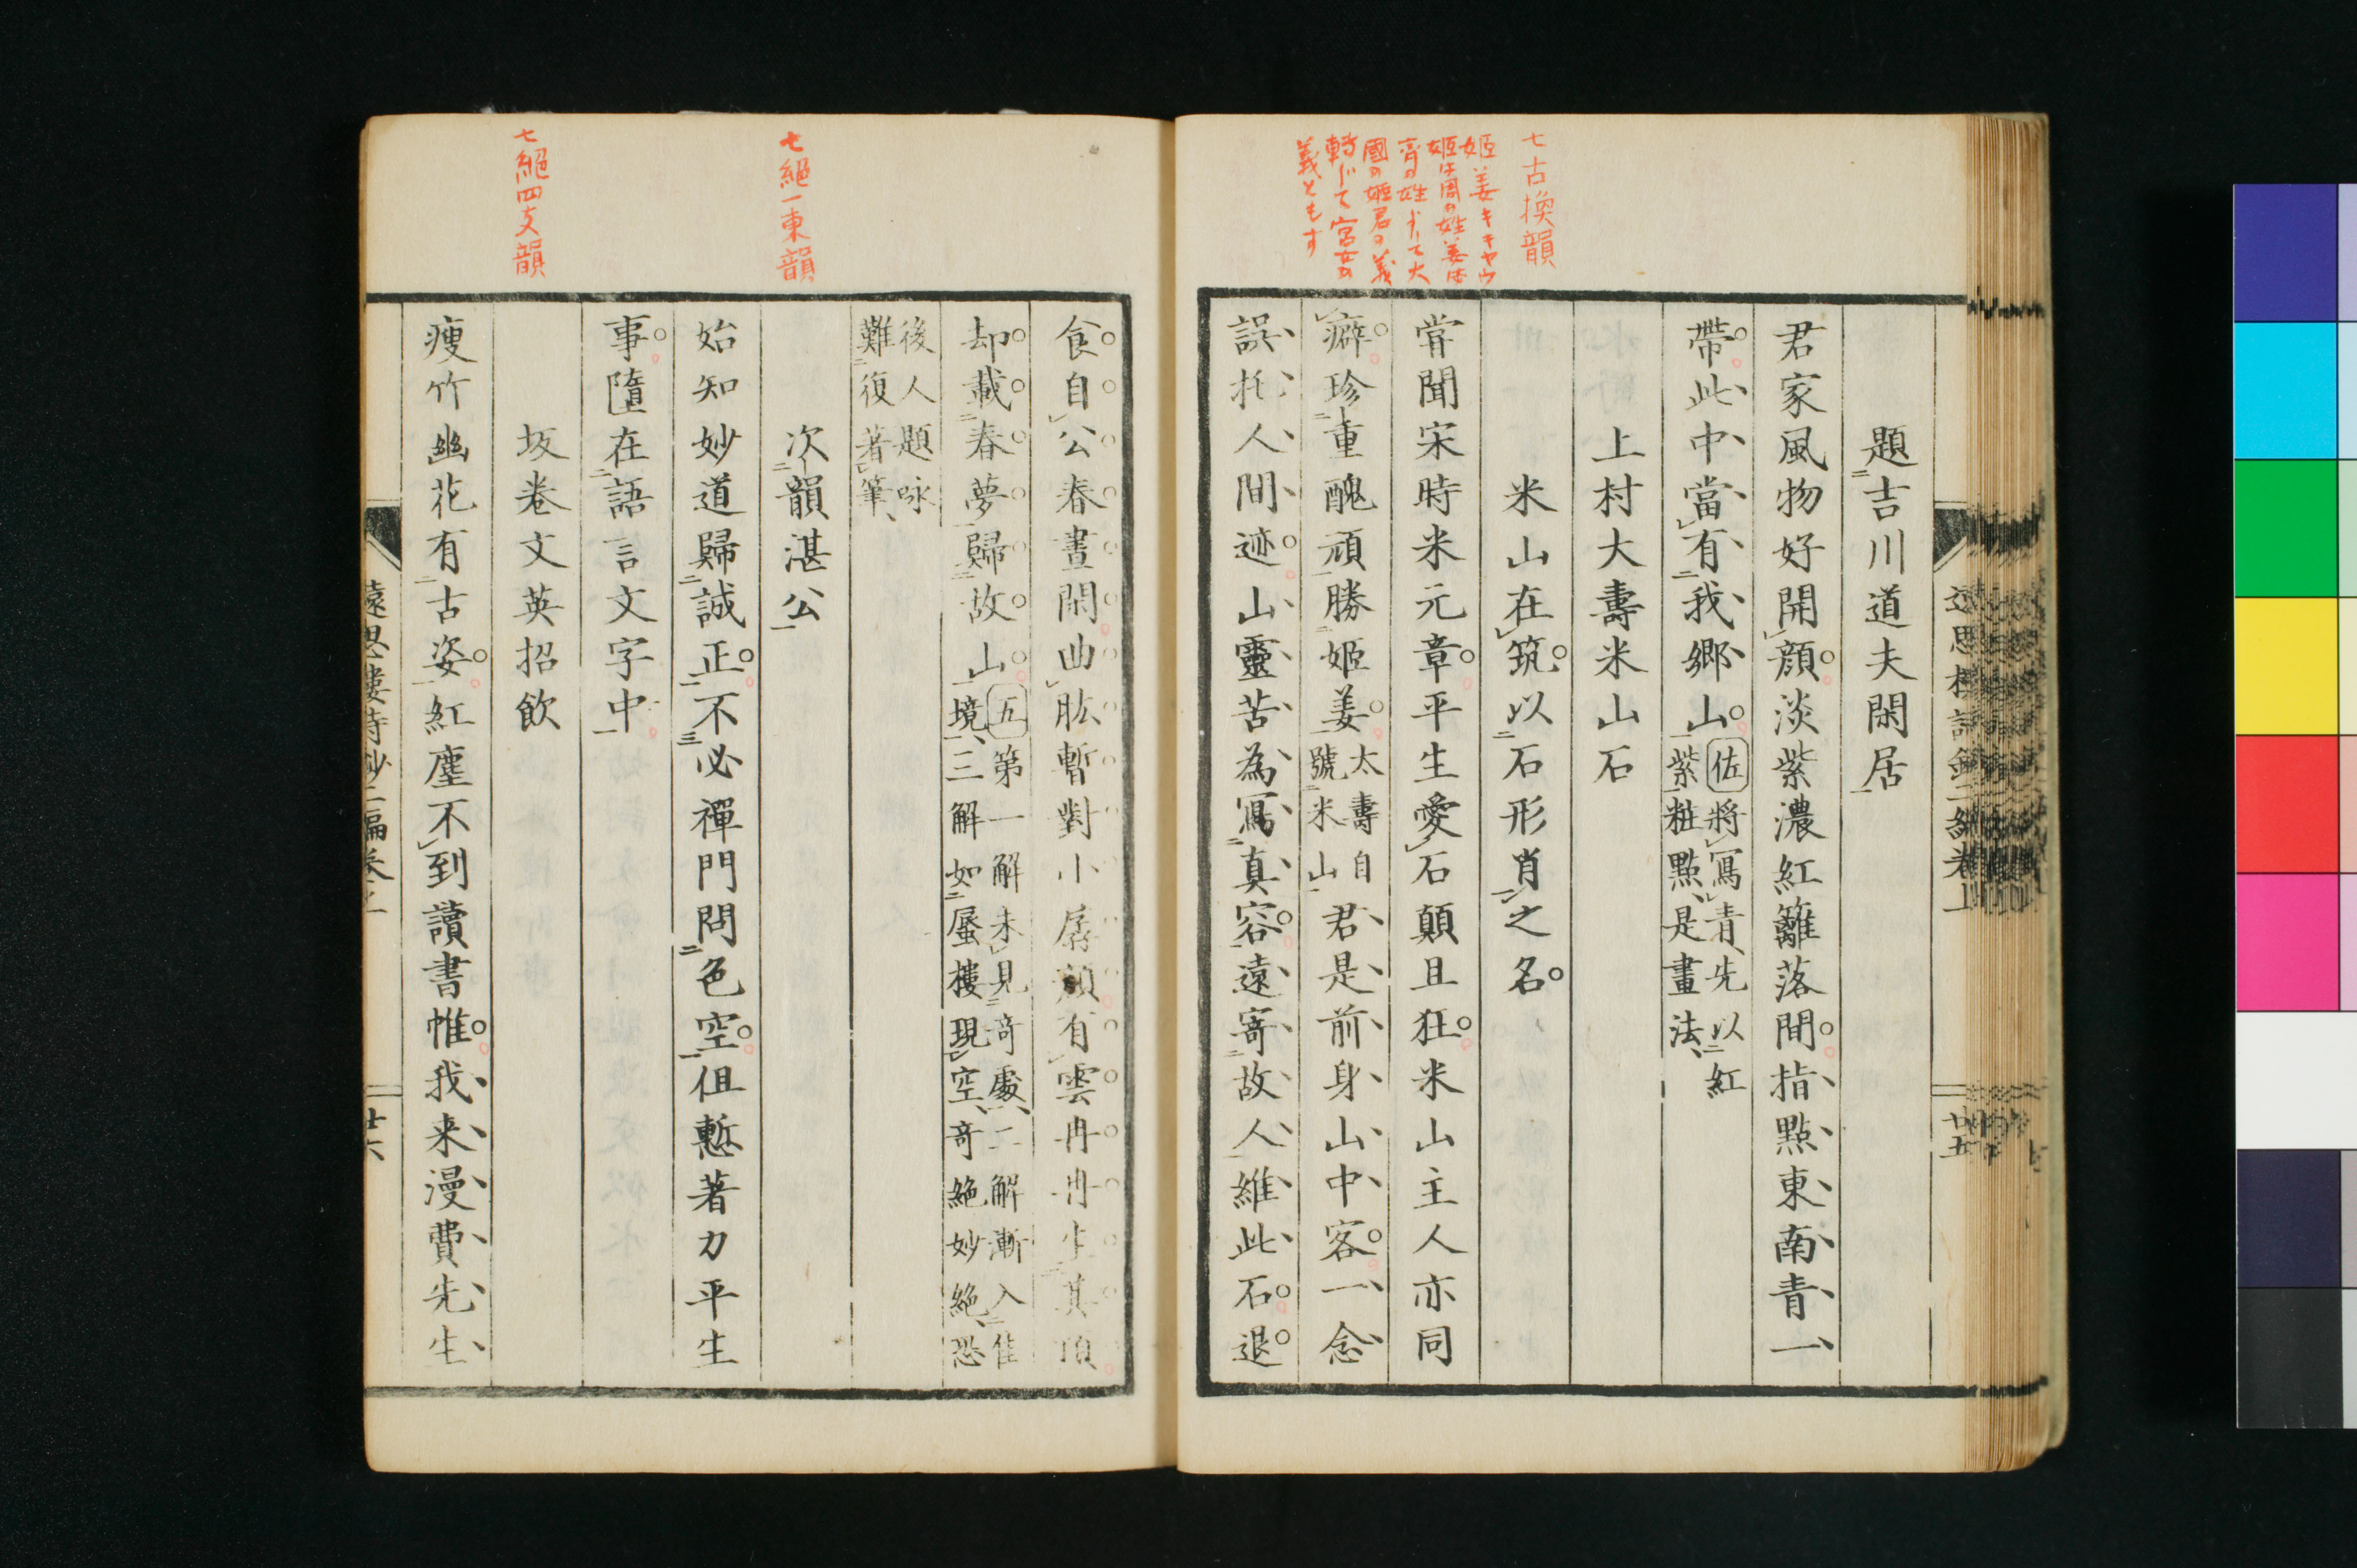 七古換韻
姫姜キキヤウ
姫は周の姓姜は
齊の姓ドーて大
國の姫君の義
轉じて宮女の
義ともす
題吉川道夫閑居
君家風物好開顔淡紫濃紅籬落間指點東南青一
帶此中當有我郷山佐將寫青先以紅
紫粧點是畫法
上村大壽米山石
米山在筑以石形肖之名
甞聞宋時米元章平生愛石顛且狂米山主人亦同
癖珍重醜頑勝姬姜太壽自
號米山君是前身山中客一念
誤托人間迹山靈苦為寫真容遠寄故人維此石退
遠思樓詩鈔二編卷上
廿五
七絕一東韻
七絕四支韻
食自公春晝閑曲肱暫對小孱顏有雲冉冉生其頂
却載春夢歸故山五第一解未見奇處二解漸入佳
境三解如蜃樓現空奇絶妙絶恐
後人題咏
難復著筆
次韻湛公
始知妙道歸誠正不必禪門問色空但慙著力平生
事隨在語言文字中
坂卷文英招飲
瘦竹幽花有古姿紅塵不到讀書帷我来漫費先生
遠思樓詩鈔二編卷上
廿六